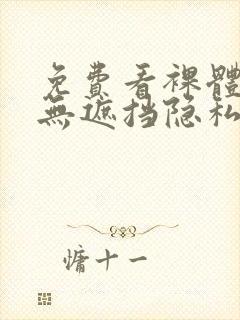 免費看裸體
無遮挡隐私
慵十一